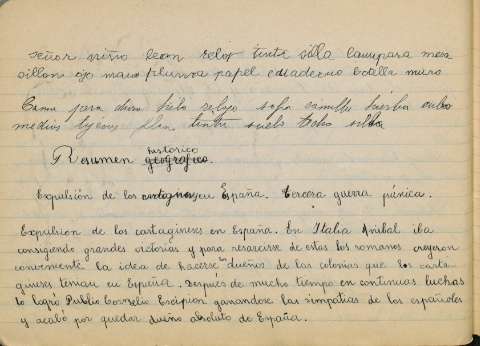 señor niño leon reloj tinta silla lampara mesa
sillon ojo mano pluma papel cuaderno botella muro
Cama para hilo sofa hierba
medias tinta suelo techo silla
Resumen historico geografico.
Expulsión de los en España. tercera guerra púnica.
Expulsion de los cartagineses en España. En Italia Anibal iba
consigiendo grandes victorias y para resarcirse de estas los romanos creyeron
conveniente la idea de hacerse en dueños de las colonias que los carta-
gineses tenian en España. Despues de mucho tiempo en continuas luchas
lo logró Publio Cornelio Escipion ganandose las simpatias de los españoles
y acabó por quedar dueño absoluto de España.